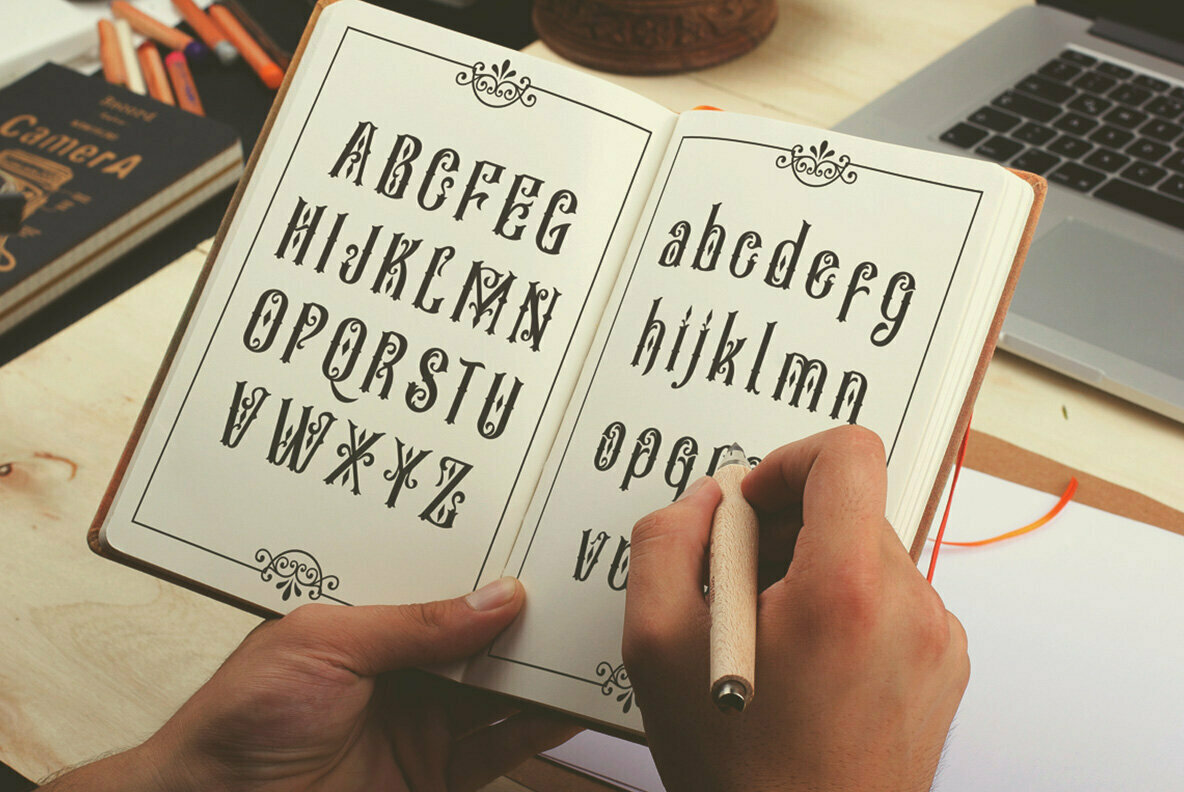 CamerA
ABCFEG
HIJKLMN
OPQRSTU
VWXYZ
abcdefg
hijklmn
opq
v